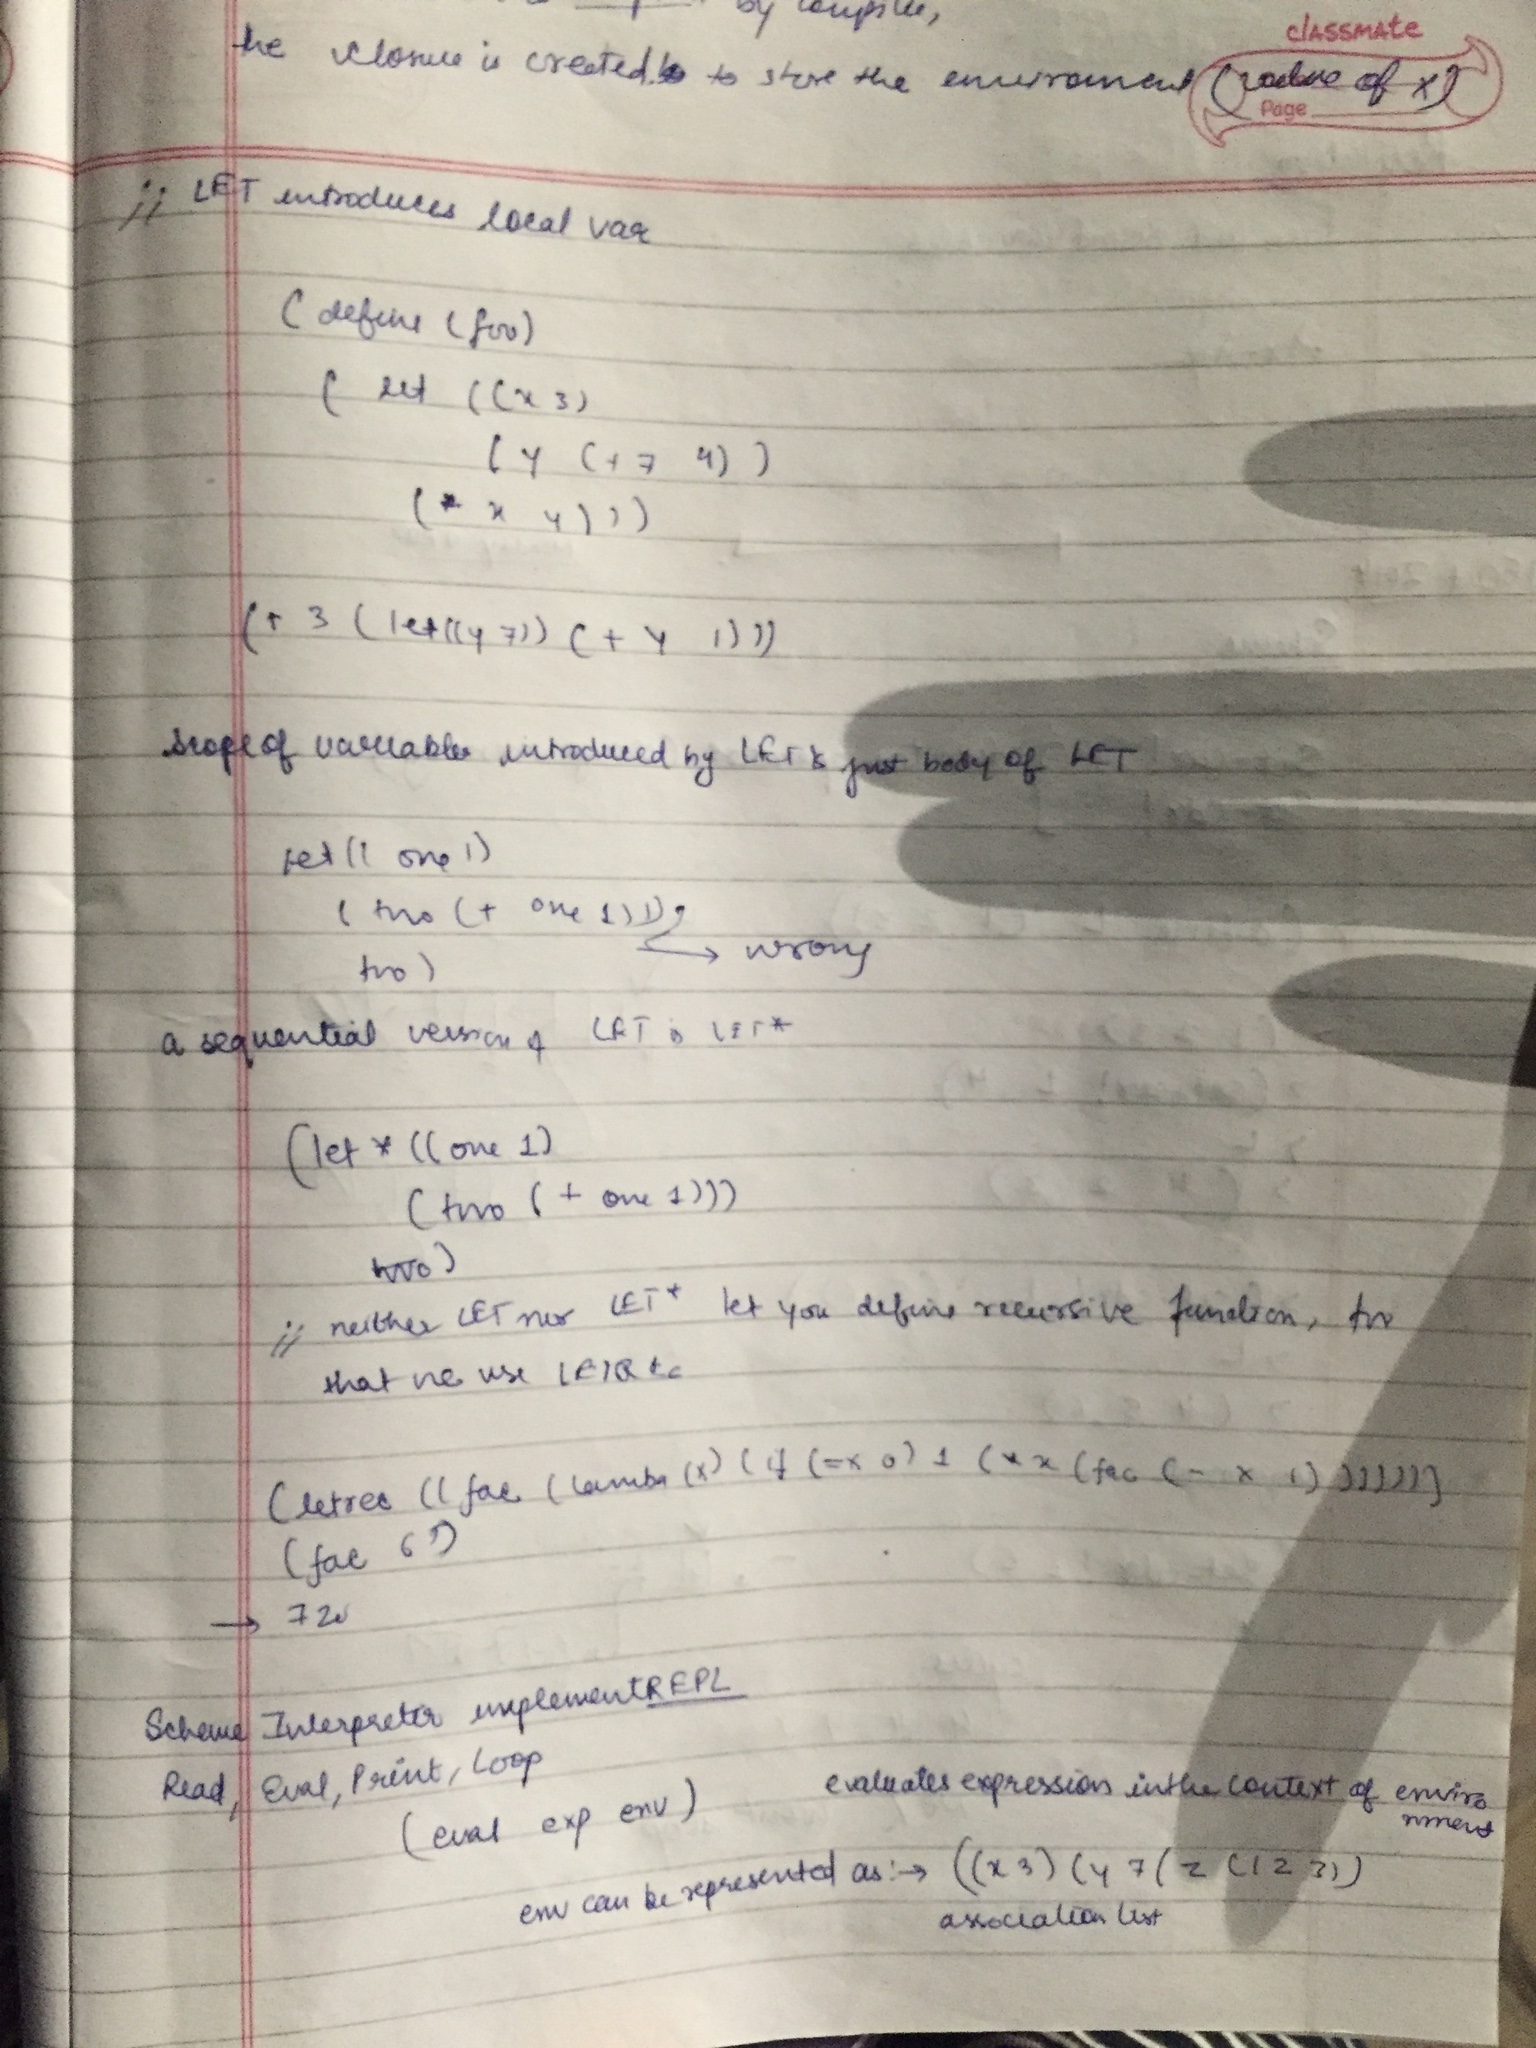 by compiler,
classmate
the closure is created to store the environment (value of x)
Page
;; LET introduces local var
(define (foo)
( let ((x 3)
(y (+ 7 4) )
(* x y)))
(+ 3 (let((y 7)) (+ y 1)))
scope of variables introduced by LET is just body of LET
let (( one 1)
( two (+ one 1)));
→ wrong
two)
a sequential version of LET is LET*
(let * ((one 1)
( two (+ one 1)))
two)
;; neither LET nor LET* let you define recursive function, for
that we use LETRec
(letrec (( fac ( lamba (x) ( if (=x 0) 1 (* x (fac (- x 1) ))))))
(fac 6))
→ 720
Scheme Interpretor implement REPL
Read, Eval, Print, Loop
(eval exp env) evaluates expression in the context of enviro
nment
env can be represented as:→ ((x 3) (y 7 ( z (1 2 3))
association list